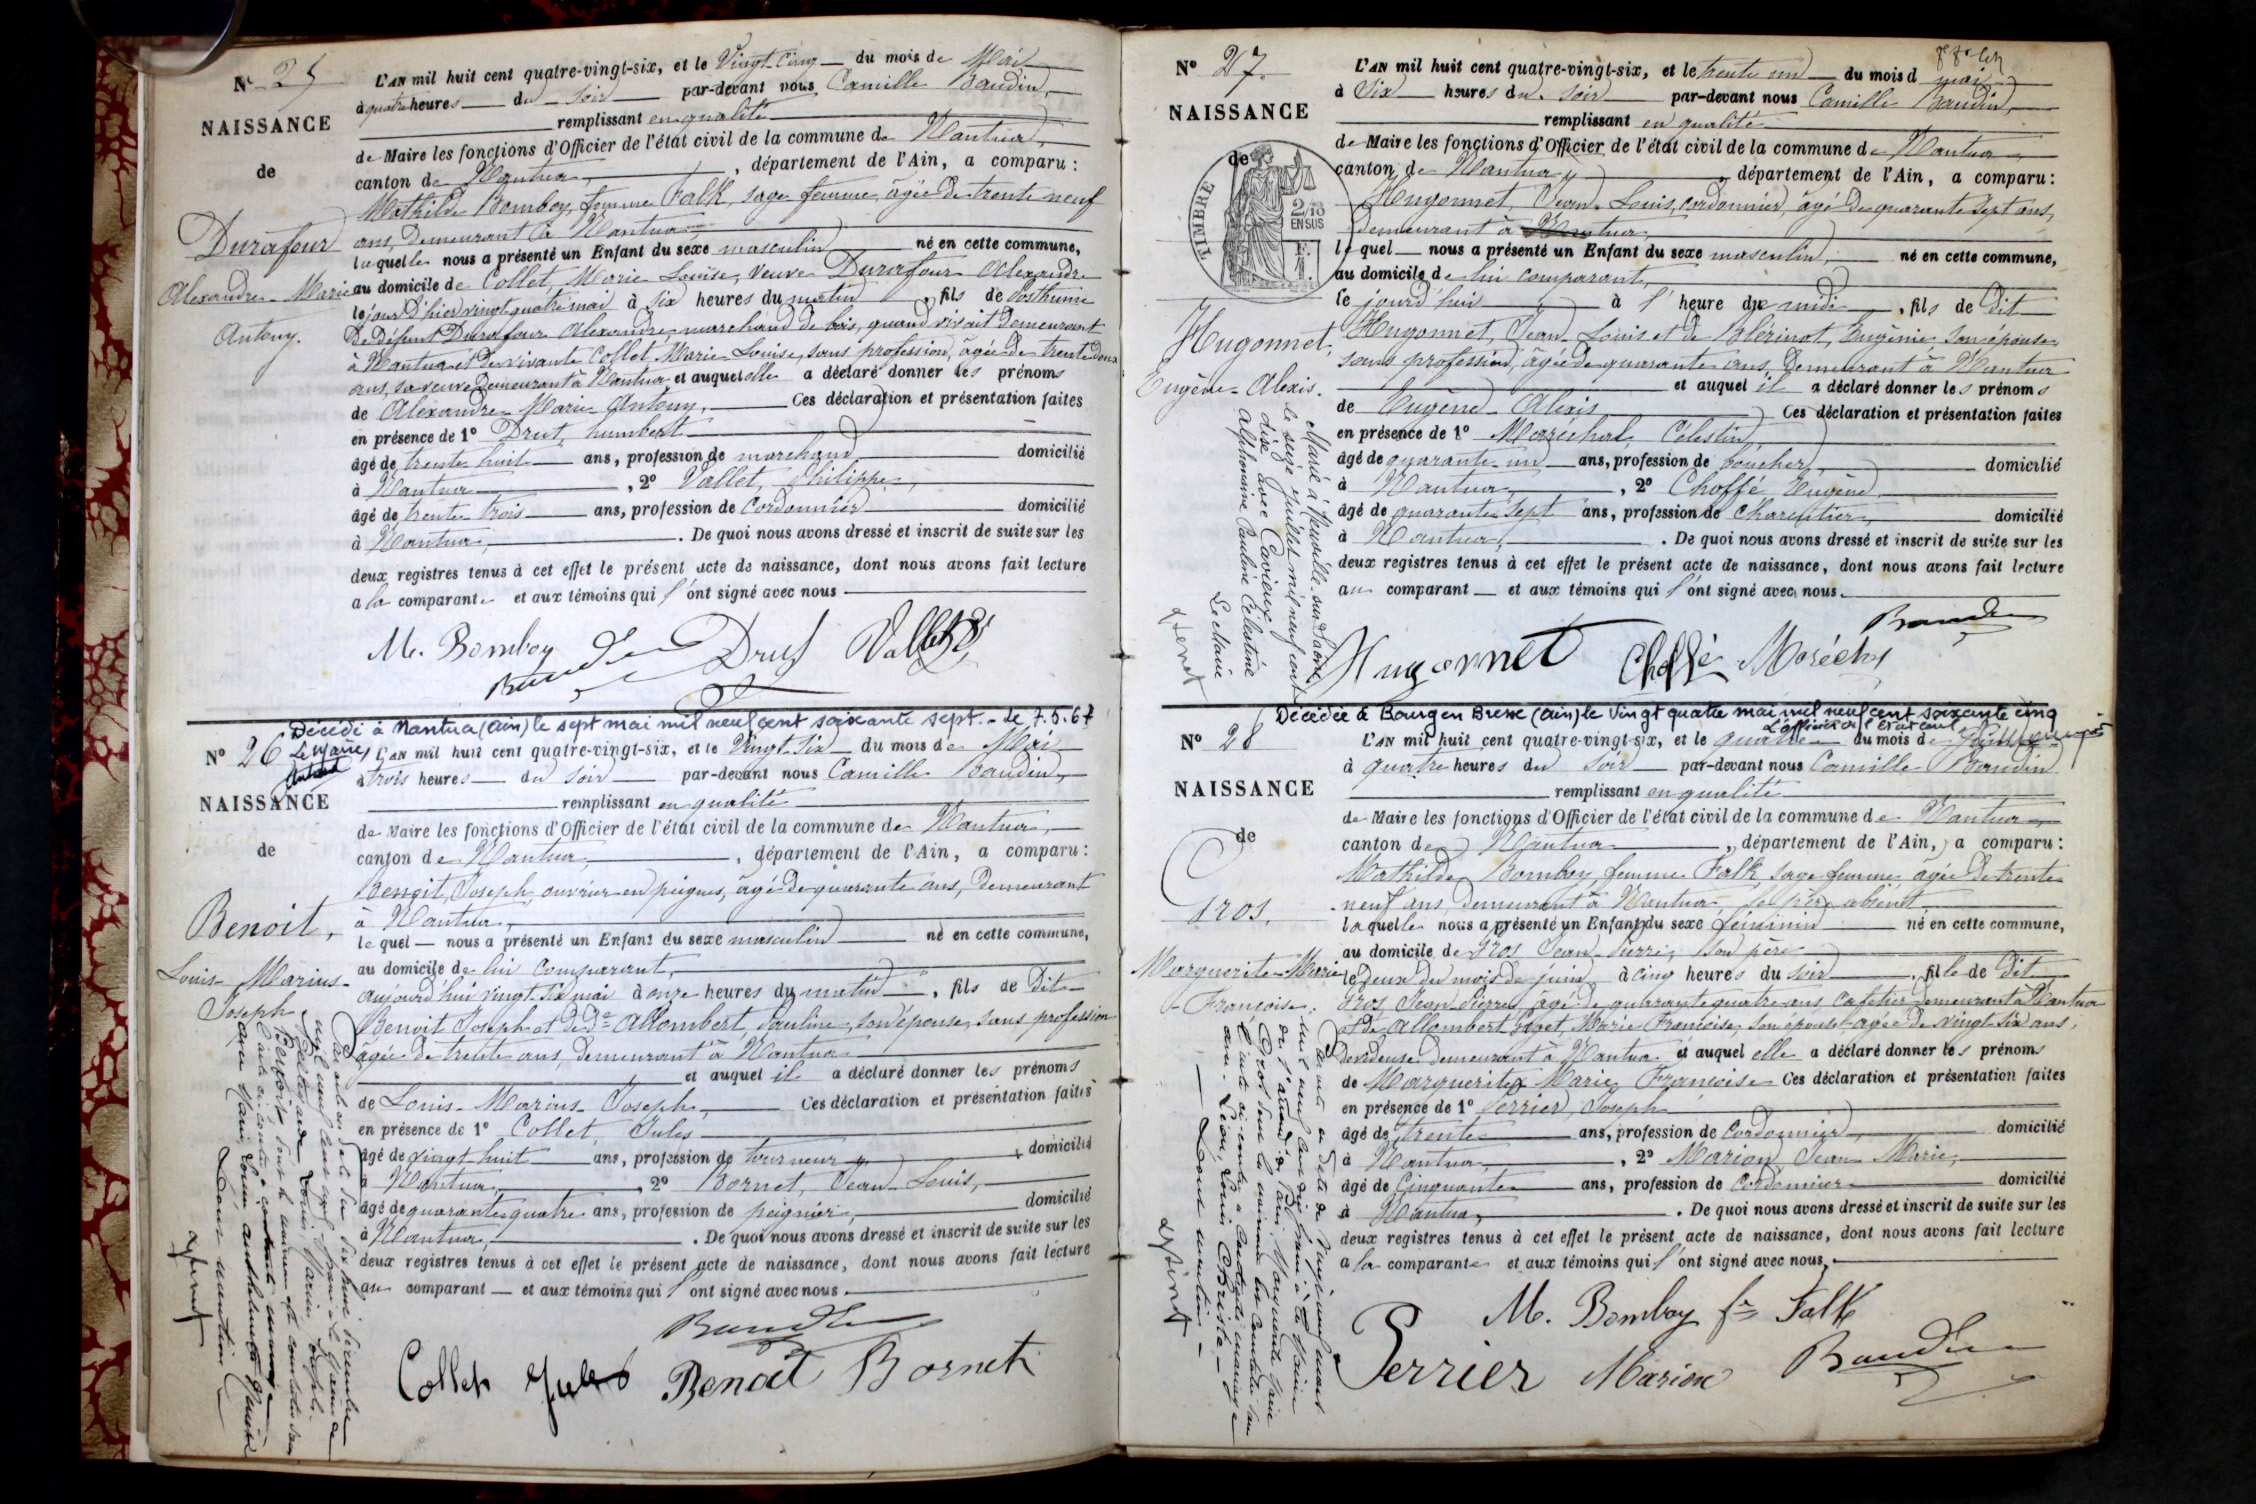 N° 25
NAISSANCE
de
Durafour
Alexandre-Marie
Antony.
L'AN mil huit cent quatre-vingt-six, et le Vingt Cinq du mois de Mai
à quatre heures du soir par-devant nous Camille Baudin,
remplissant en qualité
de Maire les fonctions d'Officier de l'état civil de la commune de Nantua,
canton de Nantua, département de l'Ain, a comparu :
Mathilde Bomboy, femme Falk, sage femme, âgée de trente neuf
ans, demeurant à Nantua,
laquelle nous a présenté un Enfant du sexe masculin né en cette commune,
au domicile de Collet, Marie Louise, veuve Durafour Alexandre
le jour d'hier vingt quatre mai à six heures du matin, fils de Posthume
de défunt Durafour Alexandre marchand de bois, quand vivait demeurant
à Nantua et de vivante Collet Marie Louise, sans profession, âgée de trente deux
ans, sa veuve demeurant à Nantua et auquel elle a déclaré donner les prénoms
de Alexandre Marie Antony, Ces déclaration et présentation faites
en présence de 1° Drut, humbert
âgé de trente huit ans, profession de marchand domicilié
à Nantua, 2° Vallet, Philippe,
âgé de trente trois ans, profession de Cordonnier domicilié
à Nantua, . De quoi nous avons dressé et inscrit de suite sur les
deux registres tenus à cet effet le présent acte de naissance, dont nous avons fait lecture
a la comparante et aux témoins qui l'ont signé avec nous
M. Bomboy Baudin Drut Vallet
Décédé à Nantua (Ain) le sept mai mil neuf cent soixante sept. - le 7.5.67
Le Maire
N° 26
NAISSANCE
de
Benoit,
Louis-Marius-
Joseph
L'AN mil huit cent quatre-vingt-six, et le Vingt Six du mois de Mai
à trois heures du soir par-devant nous Camille Baudin,
remplissant en qualité
de Maire les fonctions d'Officier de l'état civil de la commune de Nantua,
canton de Nantua, département de l'Ain, a comparu :
Benoit, Joseph, ouvrier en peignes, âgé de quarante ans, demeurant
à Nantua,
lequel nous a présenté un Enfant du sexe masculin né en cette commune,
au domicile de lui comparant,
aujourd'hui vingt-six mai à onze heures du matin, fils de Dit
Benoit Joseph et de De Allombert, Pauline, son épouse, sans profession
âgée de trente ans, demeurant à Nantua
et auquel il a déclaré donner les prénoms
de Louis-Marius-Joseph, Ces déclaration et présentation faites
en présence de 1° Collet, Jules
âgé de vingt huit ans, profession de tourneur, domicilié
à Nantua, 2° Bornet, Jean-Louis,
âgé de quarante quatre ans, profession de peignier, domicilié
à Nantua, . De quoi nous avons dressé et inscrit de suite sur les
deux registres tenus à cet effet le présent acte de naissance, dont nous avons fait lecture
au comparant et aux témoins qui l'ont signé avec nous
Baudin
Collet Jules Benoit Bornet
N° 27.
NAISSANCE
de
TIMBRE
2/10
EN SUS
Hugonnet,
Eugène-Alexis.
L'AN mil huit cent quatre-vingt-six, et le trente un du mois d mai
à Six heures du soir par-devant nous Camille Baudin,
remplissant en qualité
de Maire les fonctions d'Officier de l'état civil de la commune de Nantua,
canton de Nantua, département de l'Ain, a comparu :
Hugonnet, Jean-Louis, cordonnier, âgé de quarante sept ans,
demeurant à Nantua,
lequel nous a présenté un Enfant du sexe masculin, né en cette commune,
au domicile de lui comparant,
le jourd'hui à l'heure de midi, fils de Dit
Hugonnet, Jean-Louis et de Blérinot, Eugénie, son épouse
sans profession, âgée de quarante ans, demeurant à Nantua
et auquel il a déclaré donner les prénoms
de Eugène Alexis Ces déclaration et présentation faites
en présence de 1° Maréchal Célestin,
âgé de quarante-un ans, profession de boucher, domicilié
à Nantua, 2° Choffé Eugène
âgé de quarante sept ans, profession de charpentier, domicilié
à Nantua, . De quoi nous avons dressé et inscrit de suite sur les
deux registres tenus à cet effet le présent acte de naissance, dont nous avons fait lecture
au comparant et aux témoins qui l'ont signé avec nous.
Marié à Neuville-sur-Saône
le seize juillet mil neuf cent
dix avec Cavieux
Alphonsine Pauline Célestine
Le Maire
Baudin
Hugonnet Choffé Maréchal
Décédée à Bourg en Bresse (Ain) le Vingt quatre mai mil neuf cent soixante cinq
L'officier de l'Etat civil
N° 28
NAISSANCE
de
Gros,
Marguerite-Marie
-Françoise.
L'AN mil huit cent quatre-vingt-six, et le quatre du mois de Juin
à quatre heures du soir par-devant nous Camille Baudin
remplissant en qualité
de Maire les fonctions d'Officier de l'état civil de la commune de Nantua,
canton de Nantua, département de l'Ain, a comparu :
Mathilde Bomboy femme Falk sage femme âgée de trente
neuf ans, demeurant à Nantua, le père absent
laquelle nous a présenté un Enfant du sexe féminin né en cette commune,
au domicile de Gros Jean-Pierre, son père
le deux du mois de juin à cinq heures du soir, fille de Dit
Gros Jean Pierre, âgé de quarante quatre ans cafetier demeurant à Nantua
et de Allombert Goget, Marie Françoise, son épouse âgée de vingt six ans,
dévideuse demeurant à Nantua et auquel elle a déclaré donner les prénoms
de Marguerite Marie Françoise Ces déclaration et présentation faites
en présence de 1° Perrier, Joseph
âgé de trente ans, profession de Cordonnier domicilié
à Nantua, 2° Marion Jean Marie,
âgé de Cinquante ans, profession de Cordonnier domicilié
à Nantua, . De quoi nous avons dressé et inscrit de suite sur les
deux registres tenus à cet effet le présent acte de naissance, dont nous avons fait lecture
a la comparante et aux témoins qui l'ont signé avec nous,
M. Bomboy fe Falk
Perrier Marion Baudin